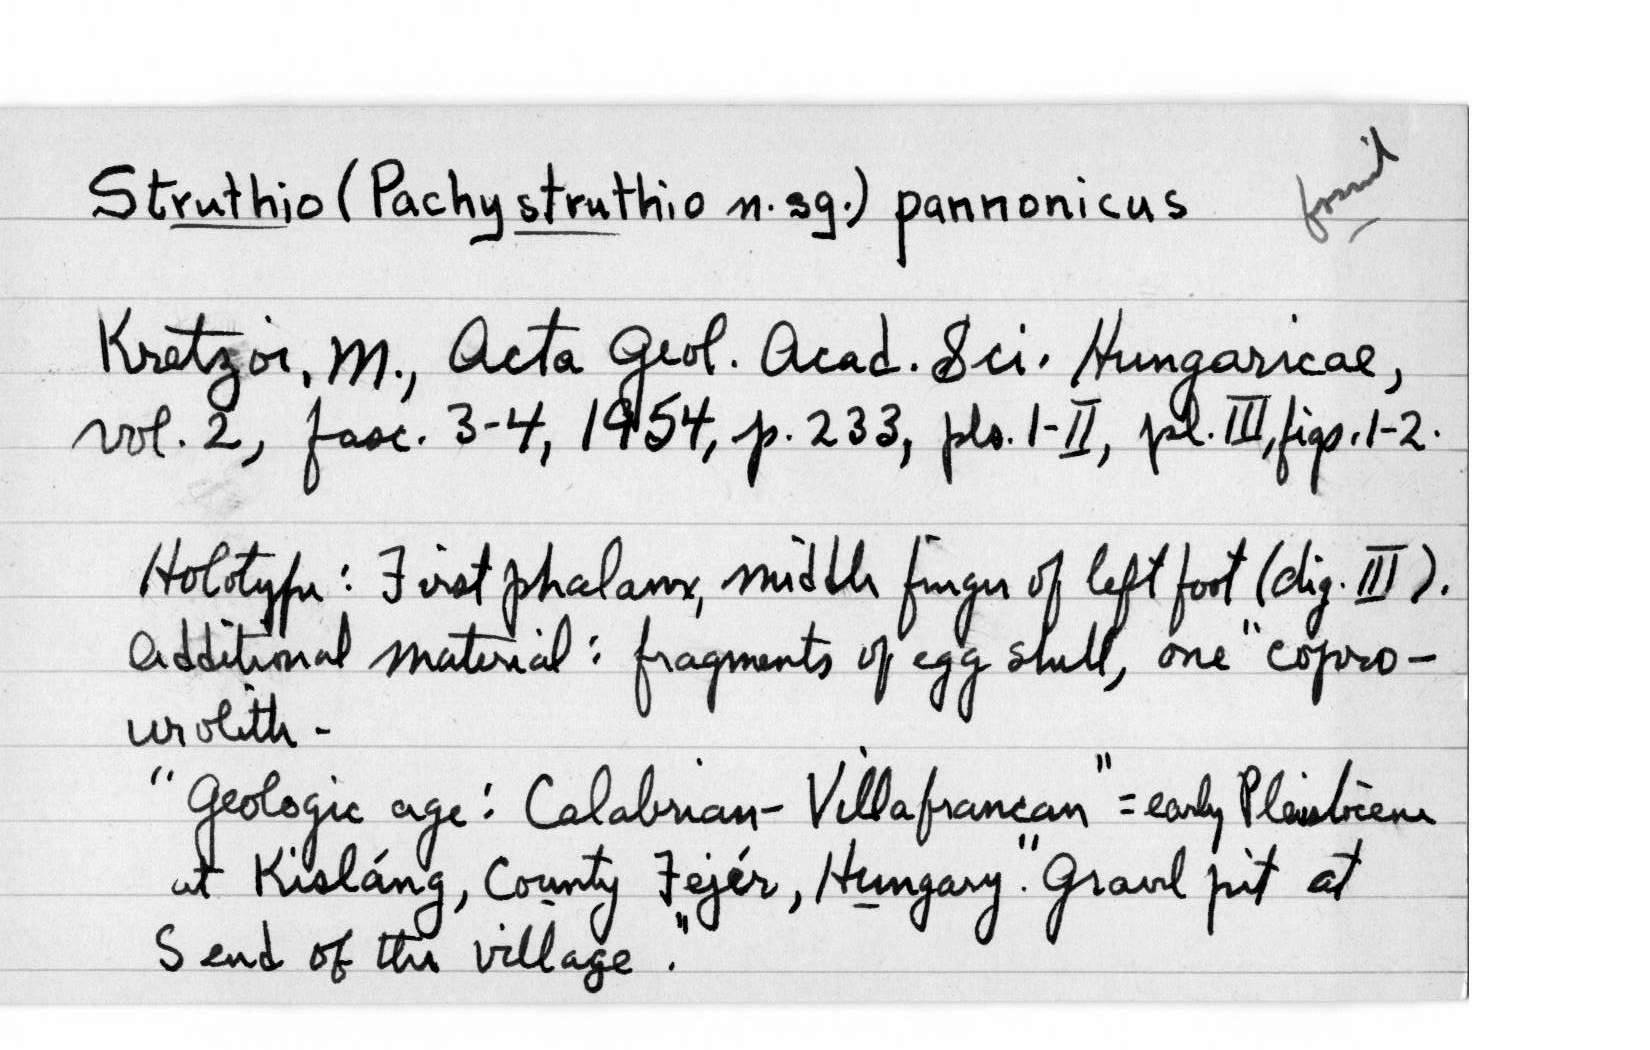 Struthio (Pachystruthio n. sg.) pannonicus
fossil
Kretzoi, M., Acta Geol. Acad. Sci. Hungaricae,
vol. 2, fasc. 3-4, 1954, p. 233, pls. I-II, pl. III, figs. 1-2.
Holotype: First phalanx, middle finger of left foot (dig. III).
Additional material: fragments of egg shell, one "copro-
urolith -
"Geologic age: Calabrian-Villafrancan" = early Pleistocene
at Kisláng, County Fejér, Hungary. "Gravel pit at
S end of the village."